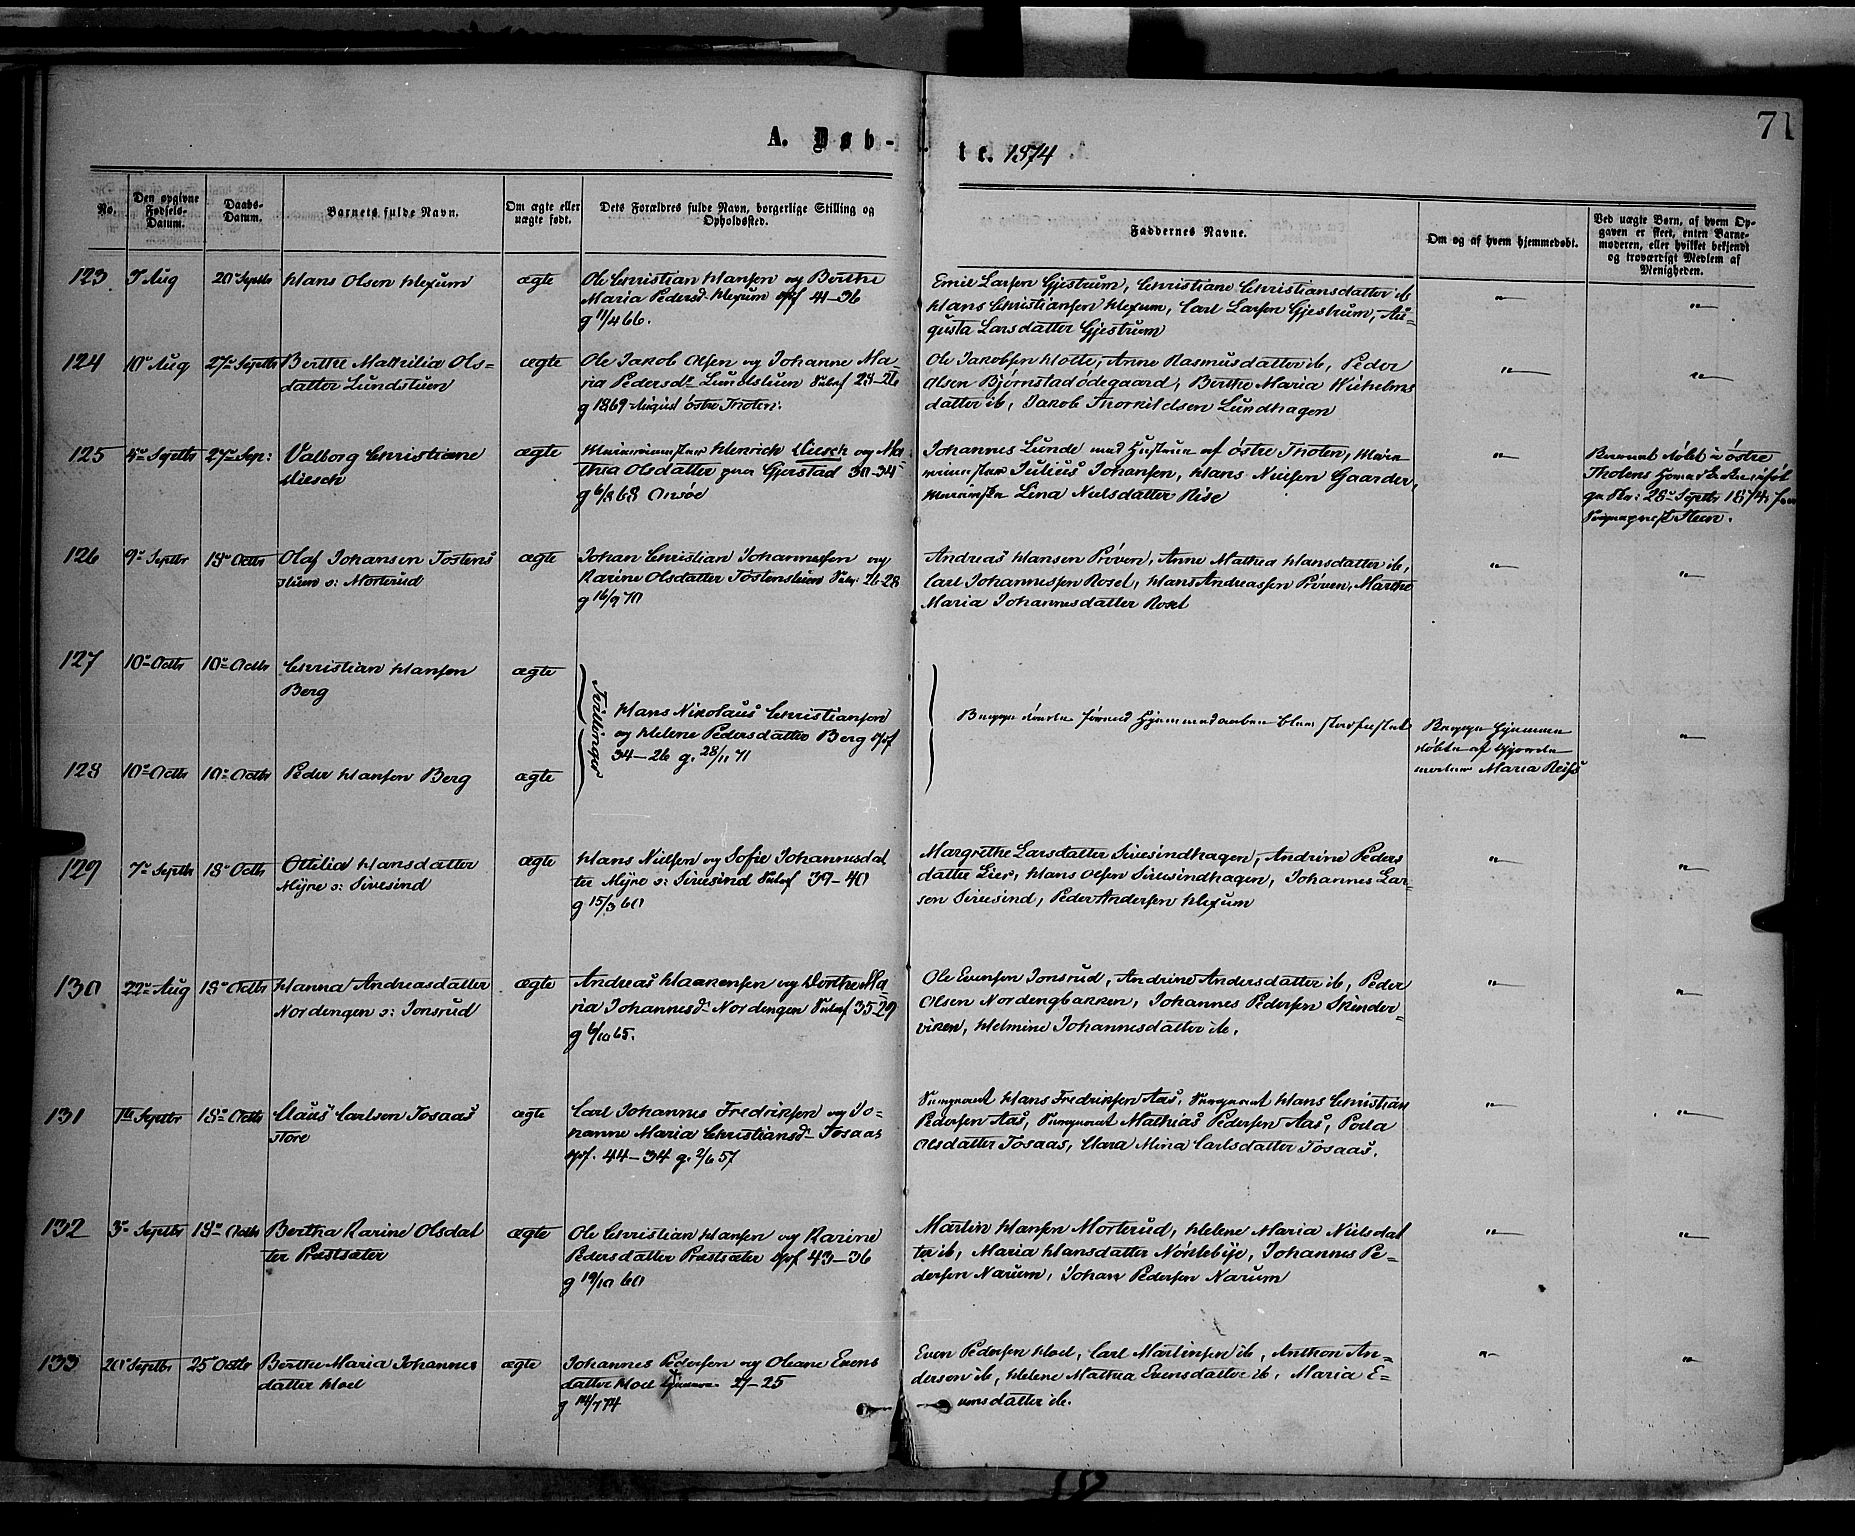 71
A. Døb-
te. 1874
No.
Den opgivne Fødsels-Datum.
Daabs-Datum.
Barnets fulde Navn.
Om ægte eller uægte født.
Dets Forældres fulde Navn, borgerlige Stilling og Opholdssted.
Faddernes Navne.
Om og af hvem hjemmedøbt.
Ved uægte Børn, af hvem Op-
gaven er skeet, enten Barne-
moderen, eller hvilket bekjendt
og troværdigt Medlem af
Menigheden.
123 Aug 20 Septbr Hans Olsen Hexum ægte
Ole Christian Hansen og Berthe
Maria Pedersd Hexum 41-36
g 11/4 66.
Emil Larsen Gjestrum, Christiane Christiansdatter ib
Hans Christiansen Hexum, Carl Larsen Gjestrum, Au-
gusta Larsdatter Gjestrum
124 10 Aug 27 Septbr Berthe Mathilia Ols-
datter Lundstuen ægte
Ole Jakob Olsen og Johanne Ma-
ria Pedersdr Lundstuen 24-26
g 1869 August østre Thoten.
Ole Jakobsen Hotte, Anne Rasmusdatter ib, Peder
Olsen Bjørnstadødegaard, Berthe Maria Wilhelms
datter ib, Jakob Thorkildsen Lundhagen
125 4 Septbr 27 Sep: Valborg Christiane
Miesch ægte
Henrich Miesch og Ma
thea Olsdatter paa Gjerstad 30-34
g 6/8 68 Onsøe
Johannes Lunde med Hustrue af østre Thoten,
Julius Johansen, Hans Nielsen Gaarder,
Lina Nielsdatter Rise
Barnet døbt i østre
Thotens
28 Septbr 1874
Steen.
126 9 Septbr 18 Octbr Olaf Johansen Tostens
stuen s: Morterud ægte
Johan Christian Johannesen og
Karine Olsdatter Tostenstuen 26-28
g 16/9 70
Andreas Hansen Prøven, Anne Mathea Hansdatter ib,
Carl Johannessen Roset, Hans Andreassen Prøven, Marthe
Maria Johannesdatter Roset
127 10 Octbr 10 Octbr Christian Hansen
Berg ægte
Tvillinger
Hans Nikolaus Christiansen
og Helene Pedersdatter Berg
34-26 g. 28/11 71
Begge døde førend Hjemmedaaben blev stadfæstet
Begge Hjemme
døbte af Gjorde
moder Maria Reiss
128 10 Octbr 10 Octbr Peder Hansen Berg ægte
129 7 Septbr 18 Octb Ottilia Hansdatter
Myre s: Sivesind ægte
Hans Nielsen og Sofie Johannesdat
ter Myre s: Sivesind 39-40
g 15/3 60
Margrethe Larsdatter Sivesindhagen, Andrine Peders
datter Lier, Hans Olsen Sivesindhagen, Johannes Lar-
sen Sivesind, Peder Andersen Hexum
130 22 Aug 18 Octbr Hanna Andreasdatter
Nordengen s: Jonsrud ægte
Andreas Haakensen og Dorthe Ma-
ria Johannesd Nordengen 35-29
g 6/10 65.
Ole Evensen Jonsrud, Andrine Andersdatter ib, Peder
Olsen Nordengbakken, Johannes Pedersen Skinder-
viken, Helmine Johannesdatter ib.
131 Septbr 18 Octbr Claus Carlsen Tosaas
store ægte
Carl Johannes Fredriksen og Jo-
hanne Maria Christiansd Tosaas
44-34 g. 2/6 57
Hans Fredriksen Aas, Hans Christian
Pedersen Aas, Mathias Pedersen Aas,
Olsdatter Tosaas, Clara Mina Carlsdatter Tosaas.
132 3 Septbr 18 Octbr Bertha Karine Olsdat
ter Præstsæter ægte
Ole Christian Hansen og Karine
Pedersdatter Præstsæter 43-36
g 19/10 60
Martin Hansen Morterud, Helene Maria Nielsdat
ter ib, Maria Hansdatter Nørstebye, Johannes Pe-
dersen Narum, Johan Pedersen Narum
133 20 Septbr 25 Octbr Berthe Maria Johannes
datter Hoel ægte
Johannes Pedersen og Oleane Evens
datter Hoel 27-25
g 14/7 74
Even Pedersen Hoel, Carl Martinsen ib, Anthon An-
dersen ib, Helene Mathea Evensdatter ib, Maria E-
vensdatter ib.